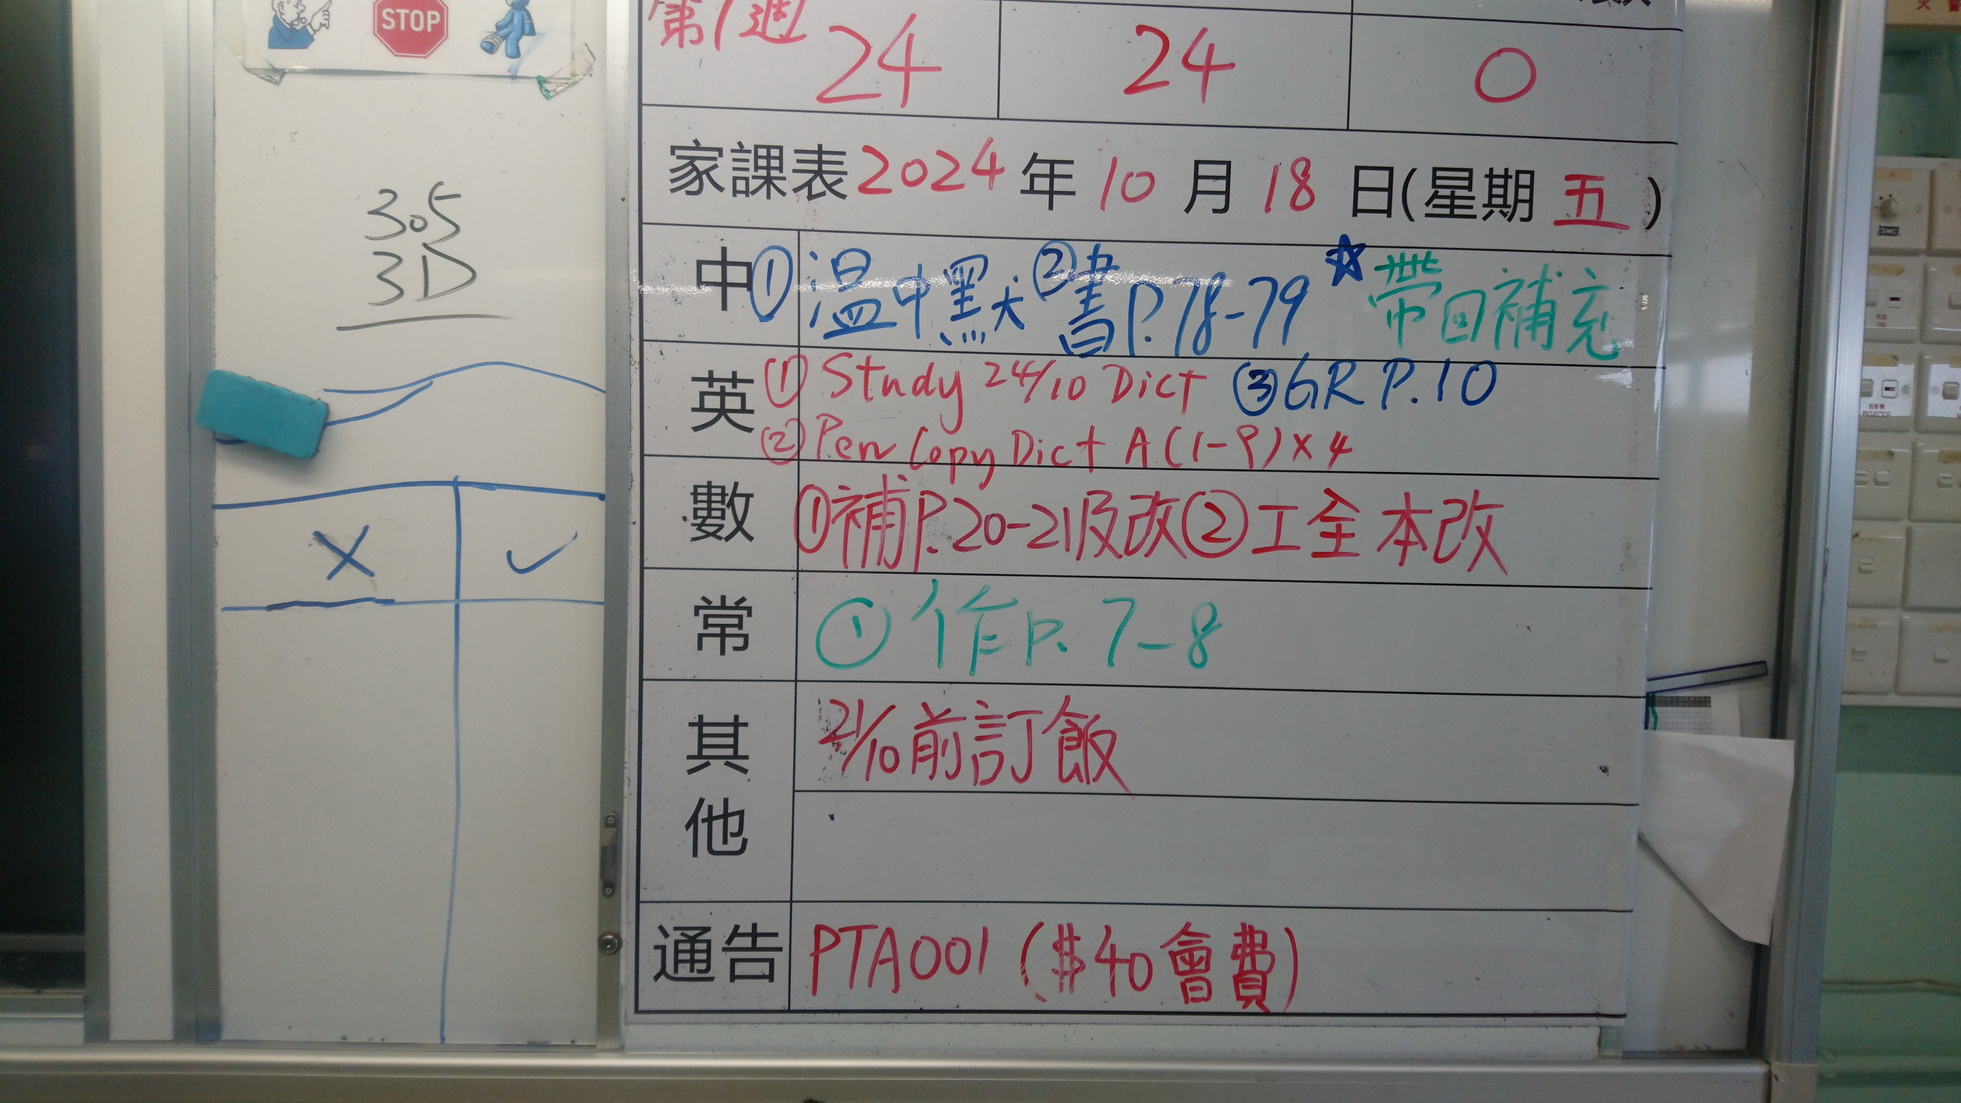 STOP
305
3D
X ✓
第1週
24 24 0
家課表2024年10月18日(星期五)
中 ①溫中默 ②書P.78-79 ☆帶回補充
英 ① Study 24/10 Dict ③GR P.10
② Pen Copy Dict A (1-9)×4
數 ①補P.20-21及改②工全本改
常 ① 作P. 7-8
其他 21/10前訂飯
通告 PTA001 ($40會費)